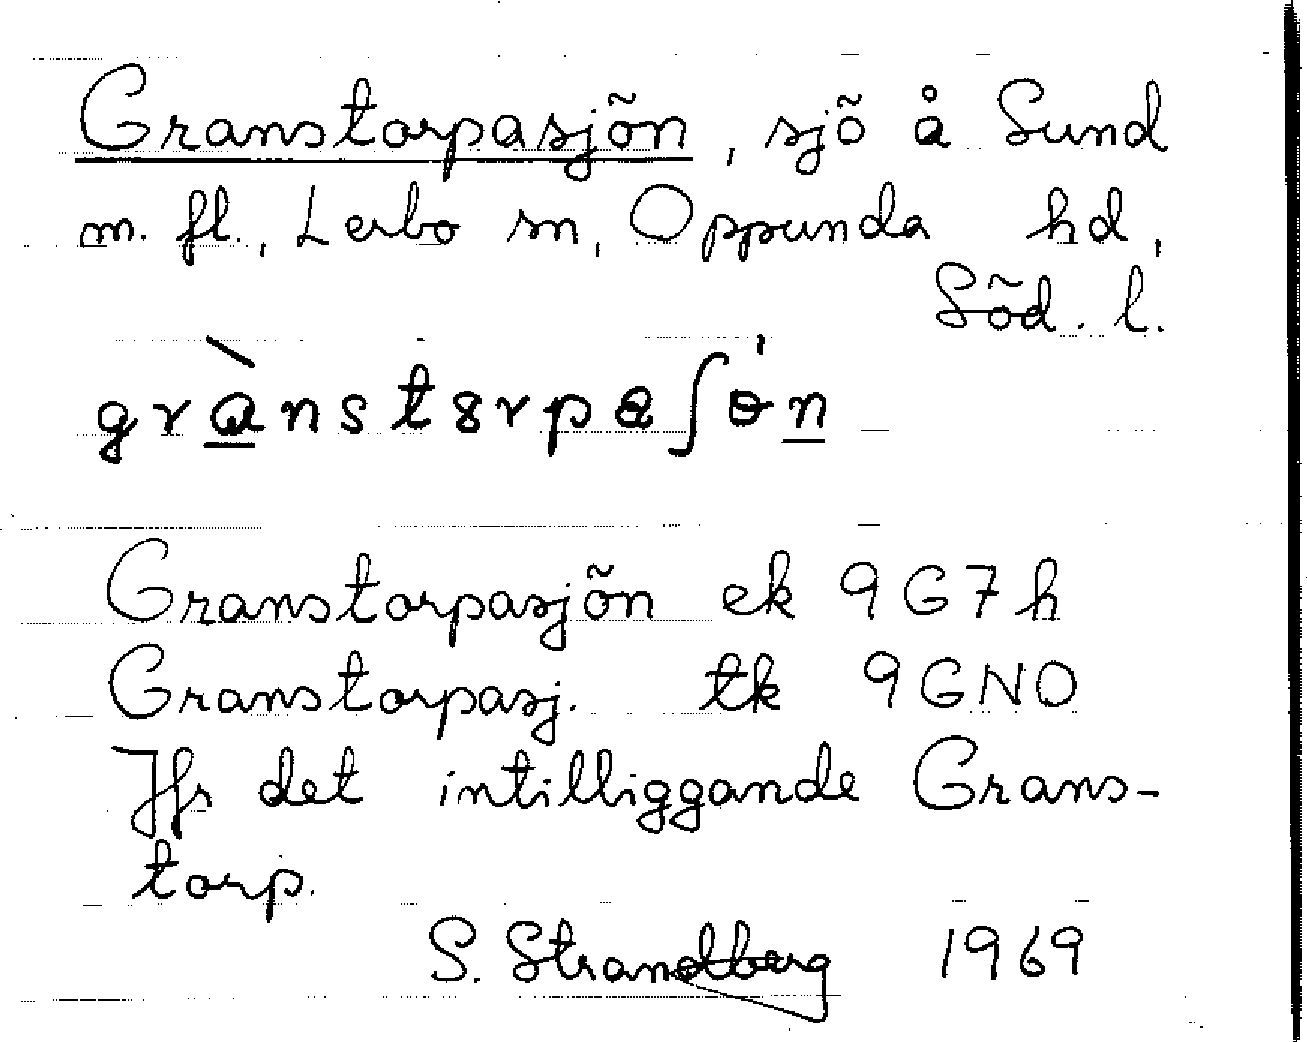 Granstorpasjön, sjö å Sund
m. fl., Lerbo sn, Oppunda hd,
Söd. l.
grànstɔrpaʃɵ́n
Granstorpasjön ek 9G7h
Granstorpasj. tk 9GNO
Jfr det intilliggande Grans-
torp.
S. Strandberg 1969